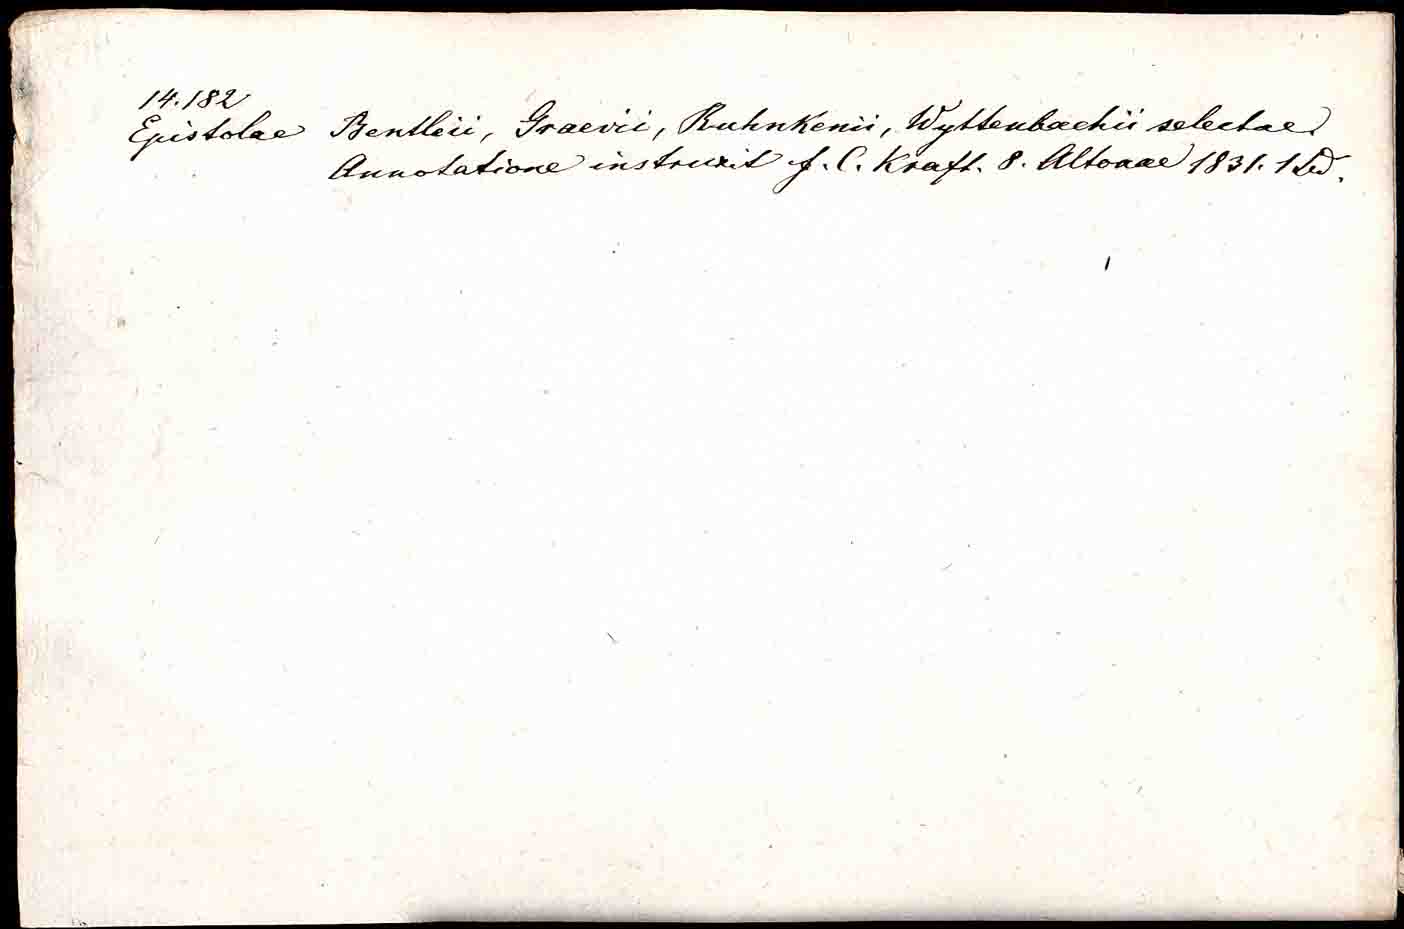 14.182
Epistolae Bentleii, Graevii, Ruhnkenii, Wyttenbachii selectae.
Annotatione instruxit f. C. Kraft. 8. Altonae 1831. 1 Bd.